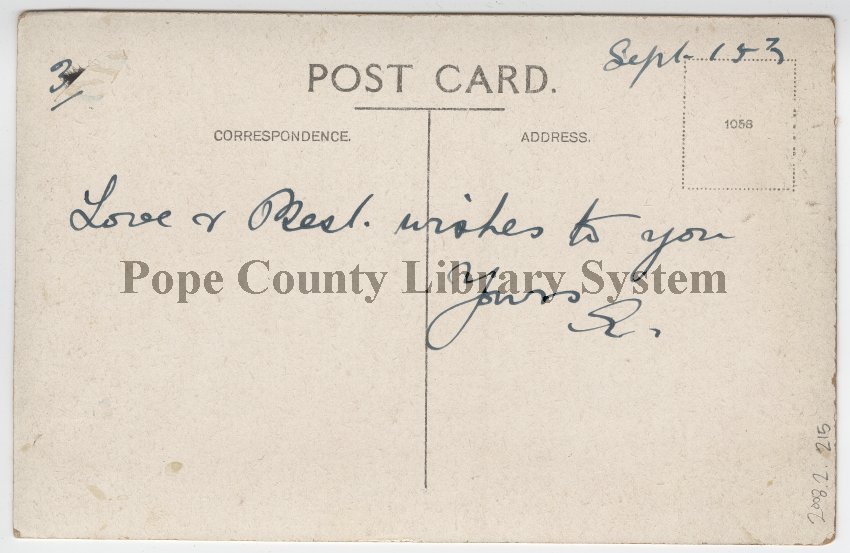 3/
Sept 153
POST CARD.
1056
CORRESPONDENCE. ADDRESS.
Love & Best. wishes to you
Pope County Library System
Yours
R.
2008.2.215